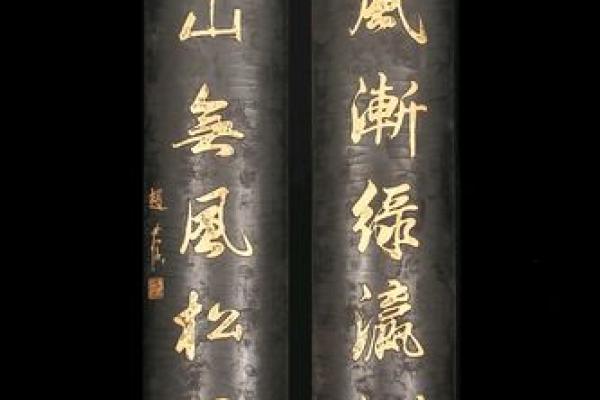 風漸綠瀛
山無風松
趙